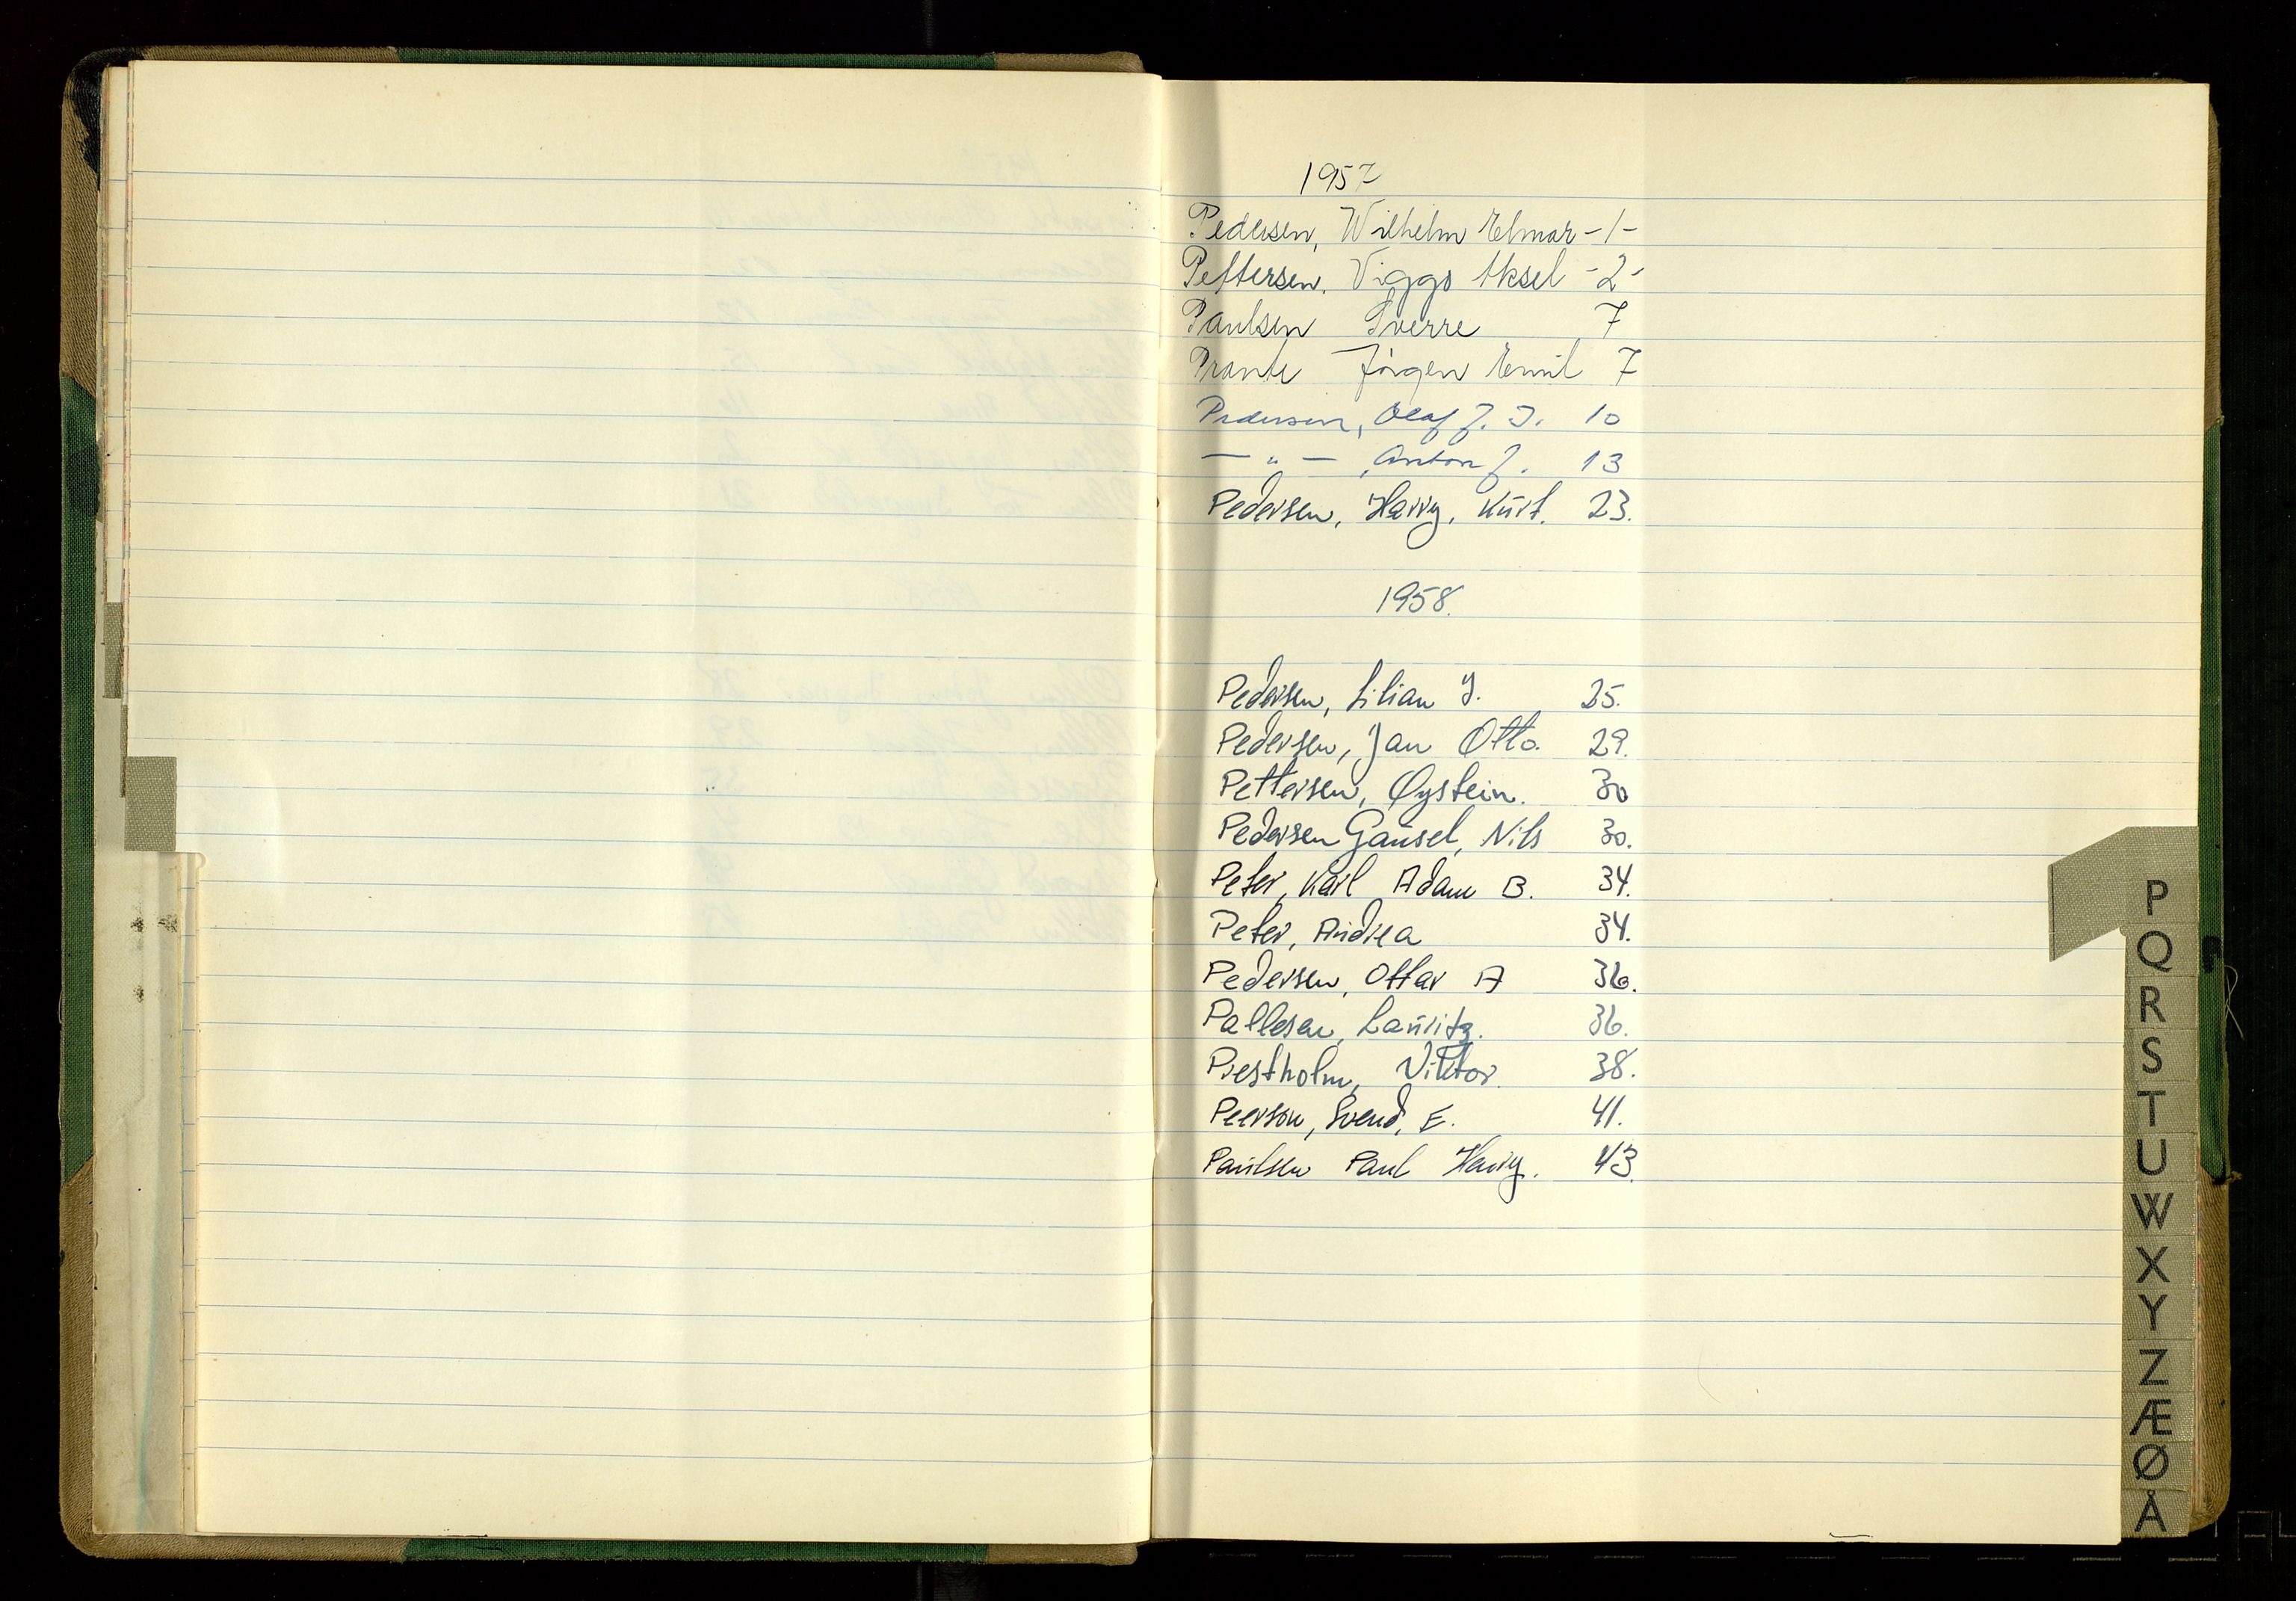 1957
Pedersen, Wilhelm Elmar -1-
Pettersen, Viggo Aksel -2-
Paulsen Sverre 7
Prante Jörgen Emil 7
Pedersen, Olaf J. J. 10
— " — , Anton J. 13
Pedersen, Harry, Kurt. 23.
1958.
Pedersen, Lilian Y. 25.
Pedersen, Jan Otto. 29.
Pettersen, Øystein. 30
Pedersen Gausel, Nils 30.
Peter, Karl Adam B. 34.
Peter, Andrea 34.
Pedersen, Ottar A 36.
Pallesen, Lauritz. 36.
Prestholm, Viktor. 38.
Peerson, Svend, E. 41.
Paulsen Paul Harry. 43.
P
Q
R
S
T
U
W
X
Y
Z
Æ
Ø
Å